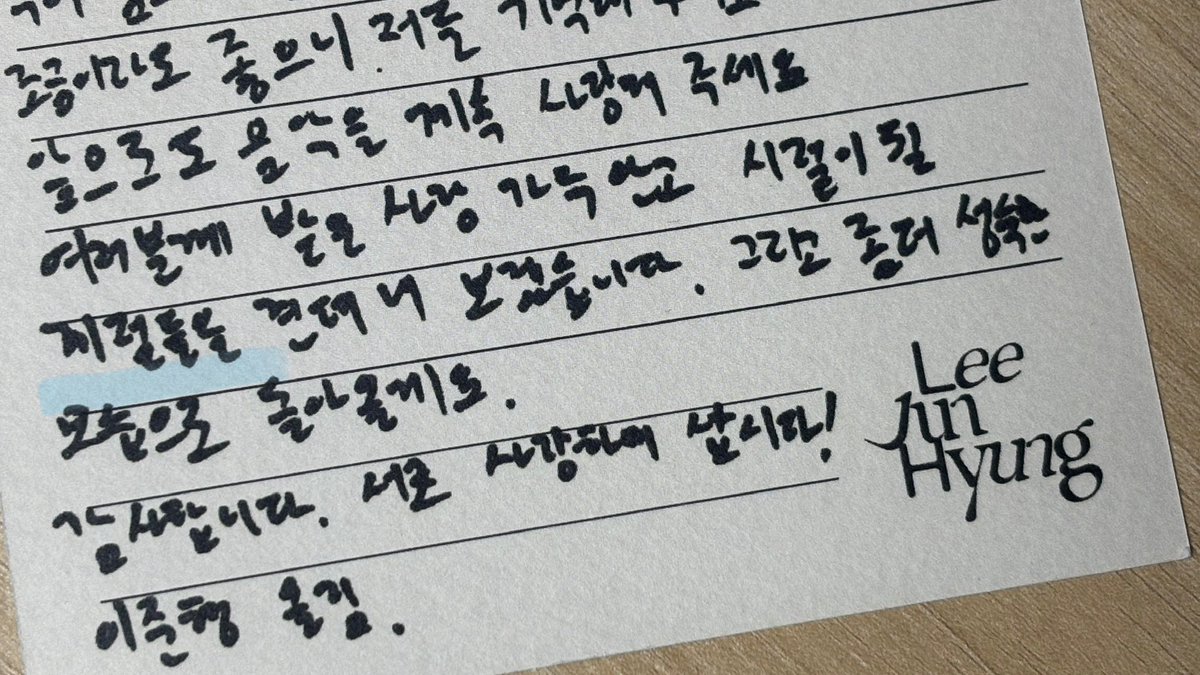 조금이라도 좋으니 저를
앞으로도 음악을 계속 사랑해 주세요
여러분께 받은 사랑 가득 안고 시절이 될
계절들을 견뎌 내 보겠습니다. 그리고 좀더 성숙한
모습으로 돌아올게요.
감사합니다. 서로 사랑하며 삽시다!
올림.
Lee
Jin
Hyung